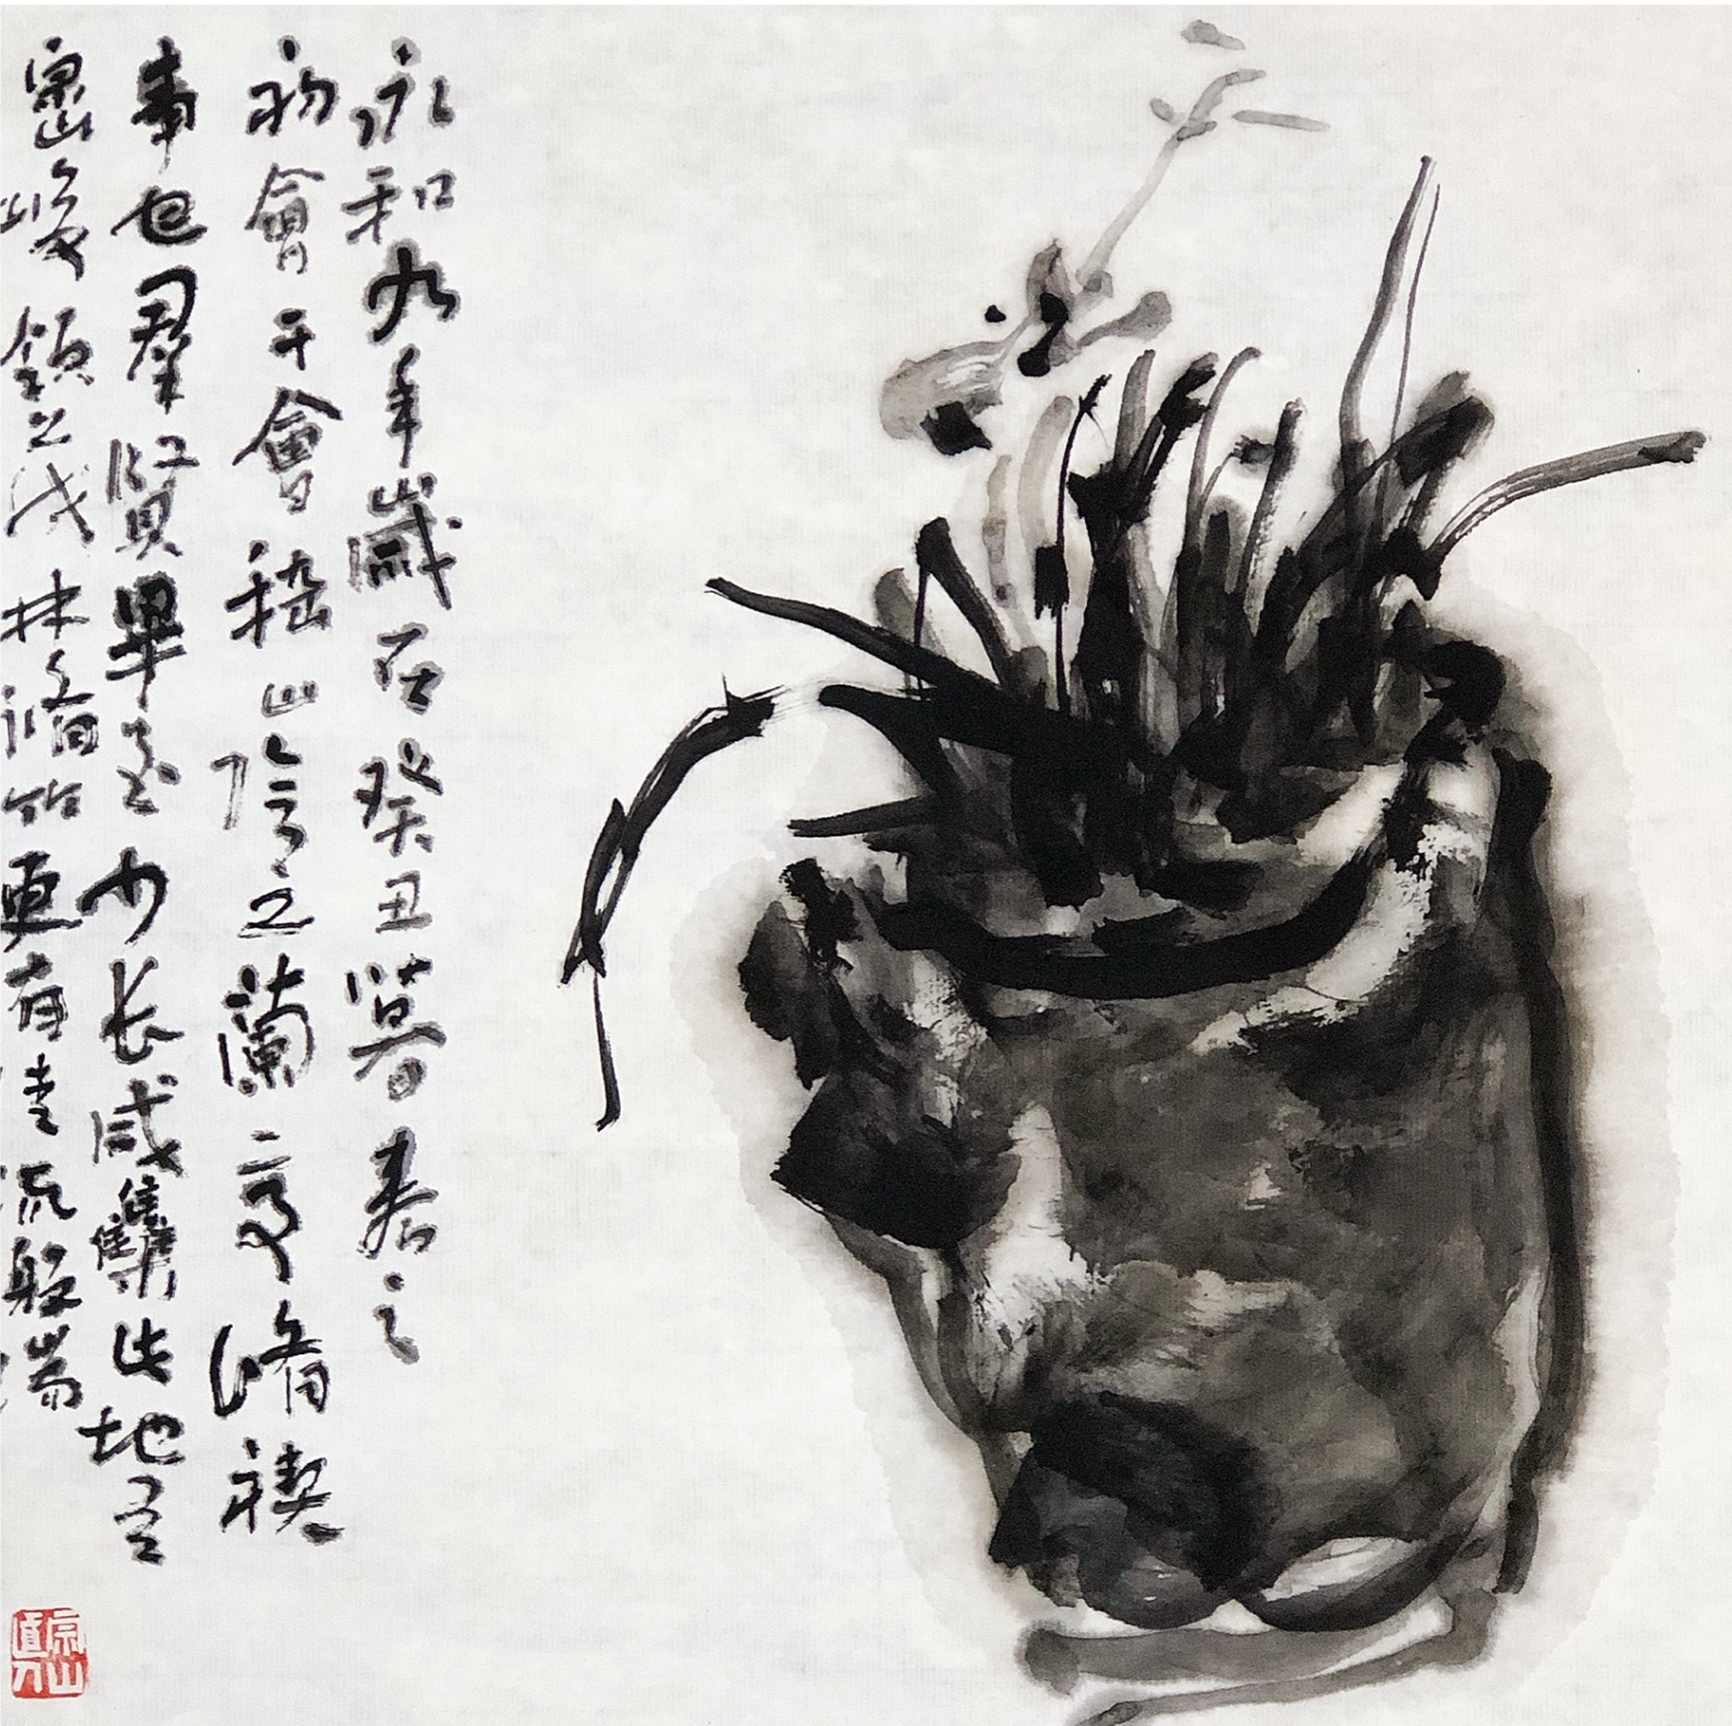 永和九年歲在癸丑暮春之
初會于會稽山陰之蘭亭脩禊
事也羣賢畢至少長咸雧此地有
崇山峻領茂林脩竹更有清流激湍